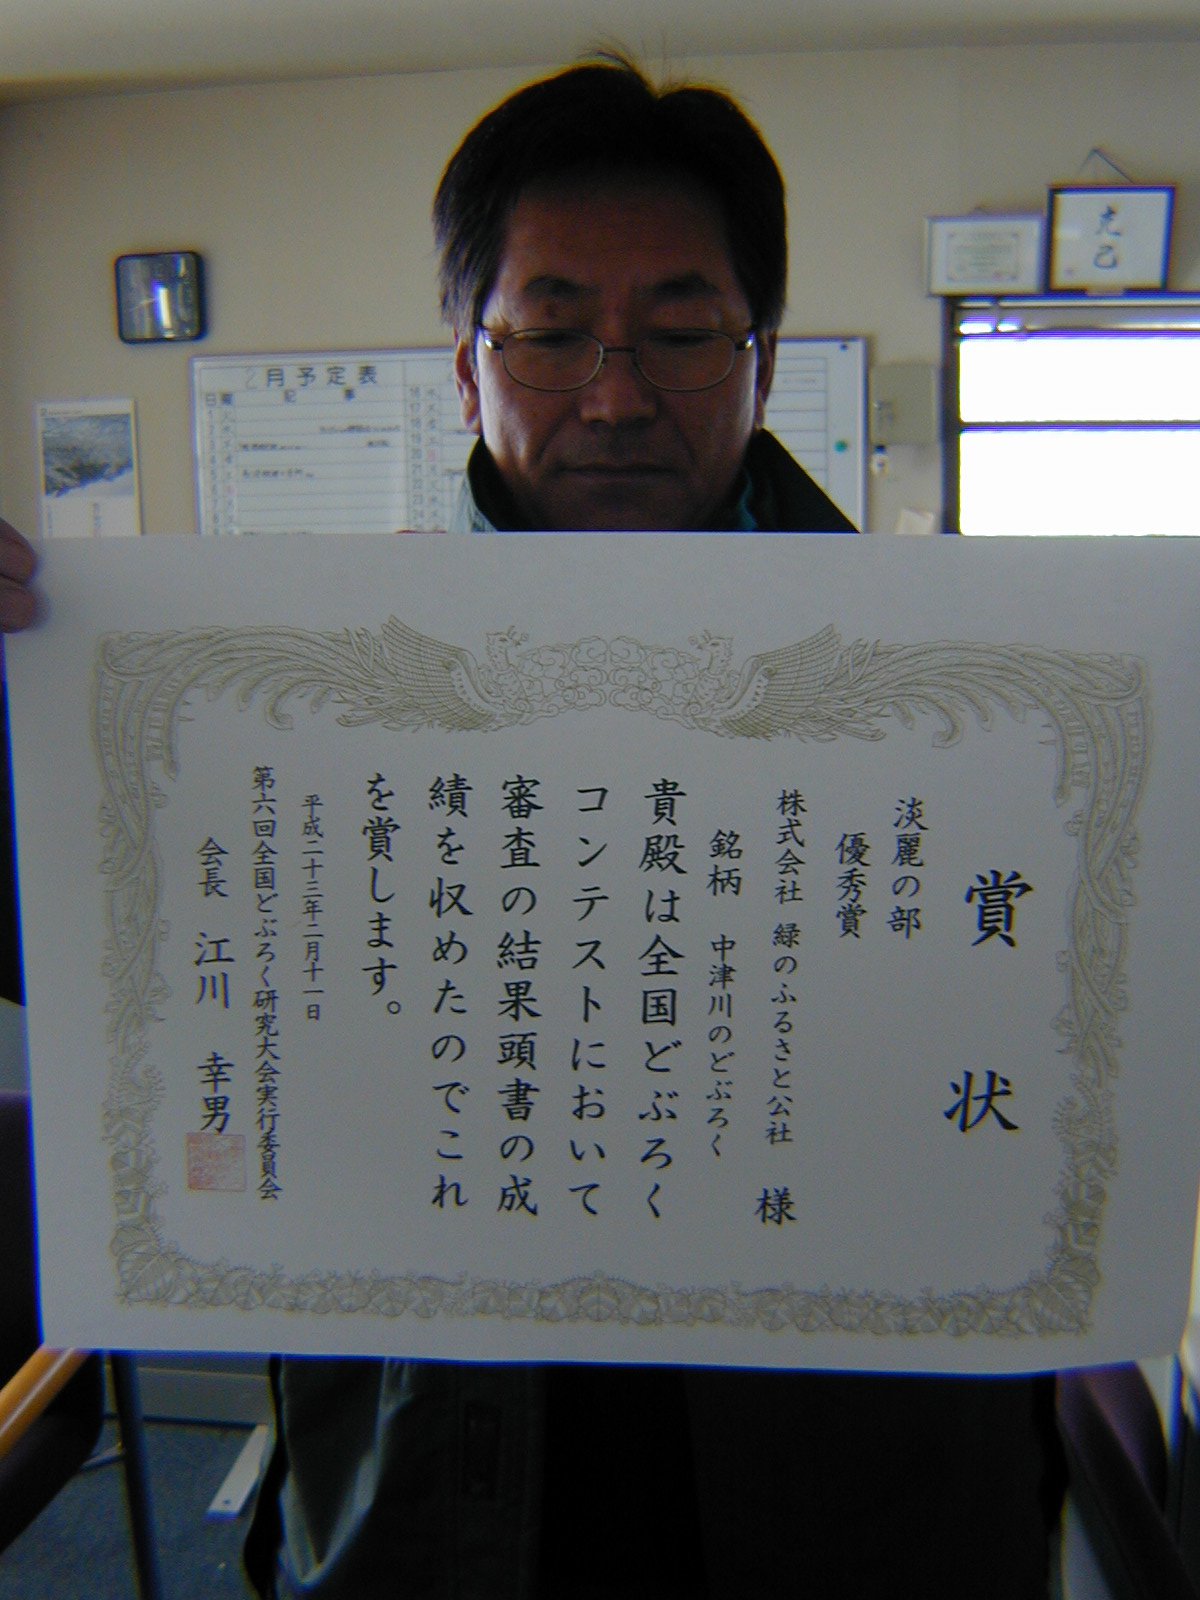 賞状
淡麗の部
優秀賞
株式会社 緑のふるさと公社 様
銘柄 中津川のどぶろく
貴殿は全国どぶろく
コンテストにおいて
審査の結果頭書の成
績を収めたのでこれ
を賞します。
平成二十三年二月十一日
第六回全国どぶろく研究大会実行委員会
会長 江川 幸男
2月予定表
日 曜 記事
克己